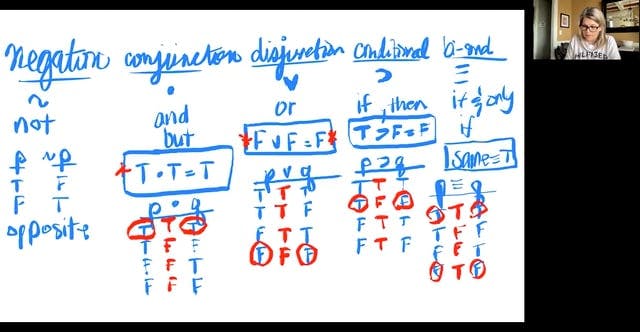 negation conjunction disjunction conditional bi-cond
~ • v ⊃ ≡
not and or if, then if & only
but if
T • T = T
* F v F = F *
T ⊃ F = F
same = T
p ~p
T F
F T
opposite
p • q
T T T
T F F
F F T
F F F
p v q
T T T
T T F
F T T
F F F
p ⊃ q
T T T
T F F
F T T
F T F
p ≡ q
T T T
T F F
F F T
F T F